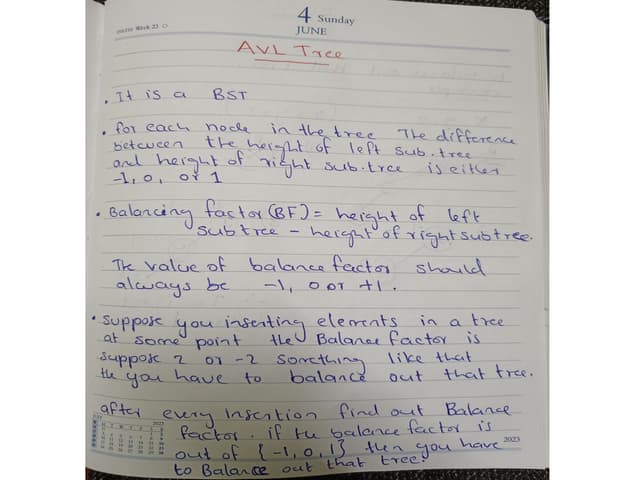 4 Sunday
JUNE
Week 23
AVL Tree
. It is a BST
. for each node in the tree The difference
between the height of left sub.tree
and height of right sub.tree is either
-1, 0, or 1
. Balancing factor (BF) = height of left
subtree - height of right subtree.
The value of balance factor should
always be -1, 0 or +1.
. Suppose you inserting elements in a tree
at some point the Balance factor is
suppose 2 or -2 something like that
the you have to balance out that tree.
after every Insertion find out Balance
factor. if the balance factor is
out of {-1, 0, 1} then you have
2023
to Balance out that tree.